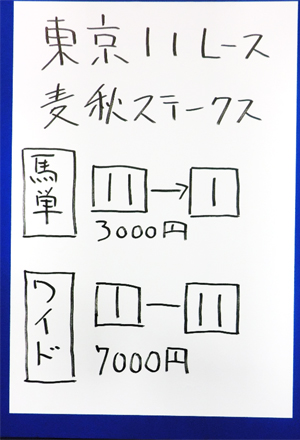 東京11レース
麦秋ステークス
馬単 11→1
3000円
ワイド 1-11
7000円